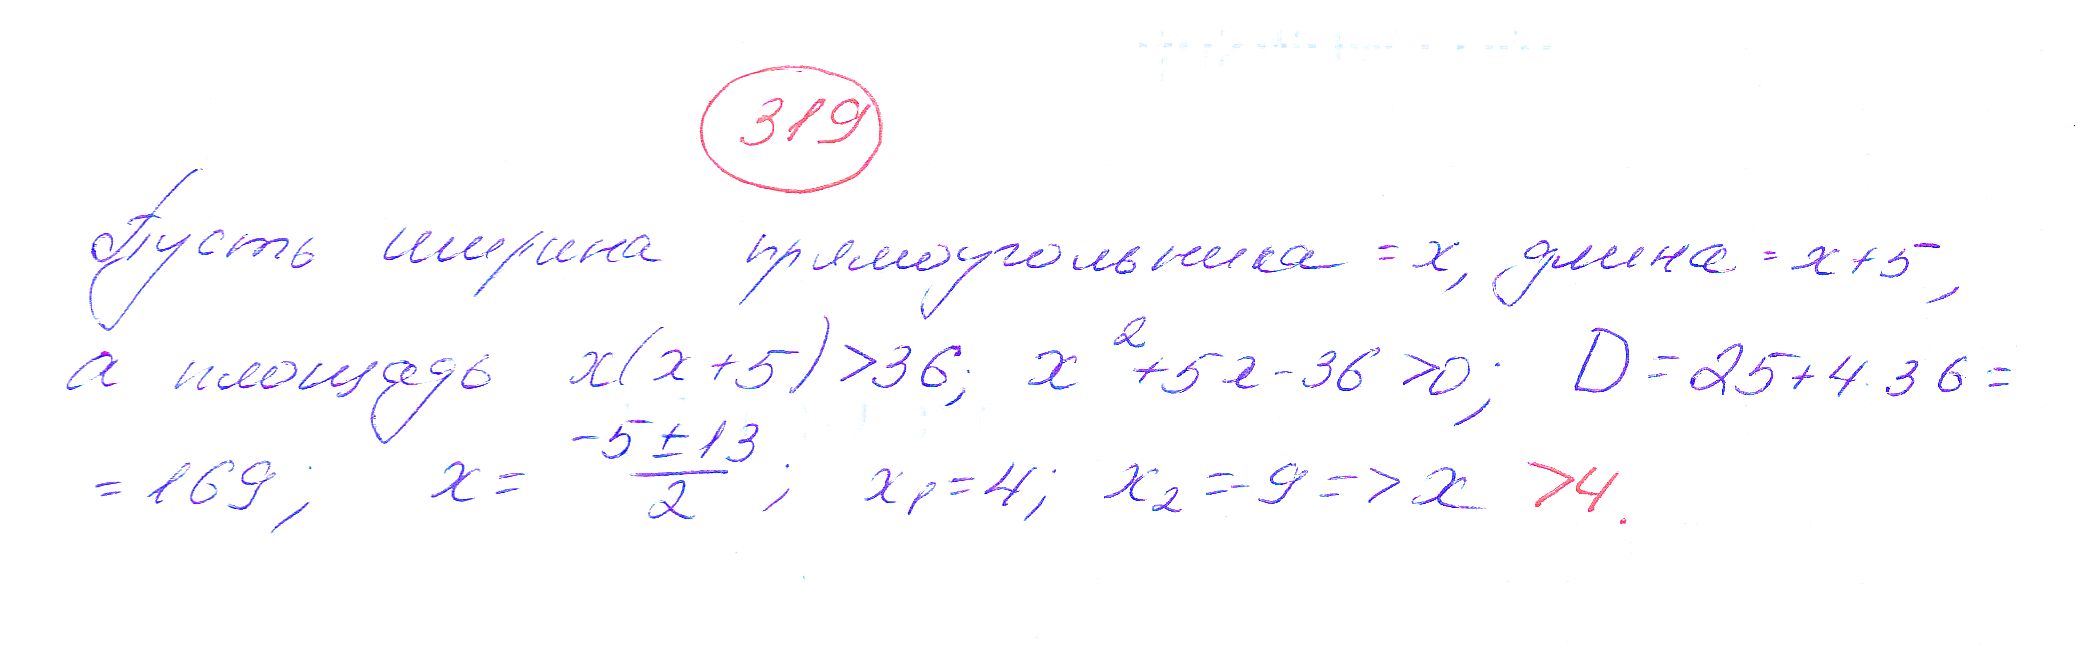 319
Пусть ширина прямоугольника = x, длина = x+5,
а площадь x(x+5)>36; x²+5x-36>0; D=25+4·36=
=169; x= (-5±13)/2; x₁=4; x₂=-9=>x >4.